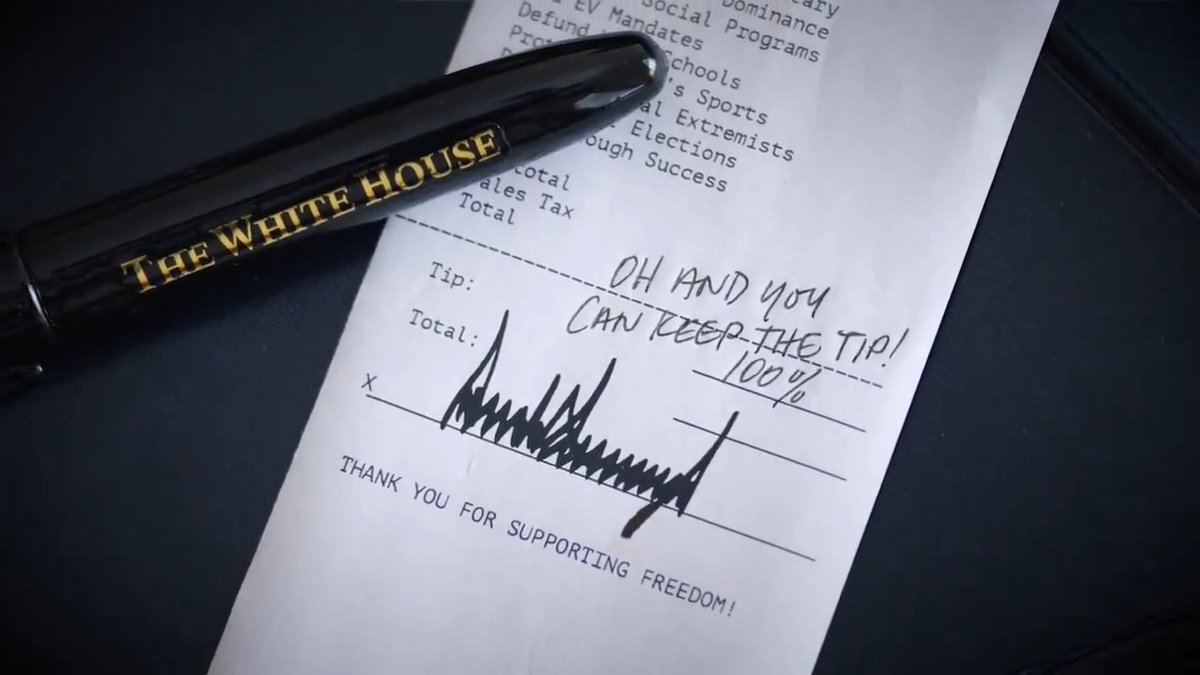 Dominance
Social Programs
EV Mandates
Defund
Schools
Sports
Extremists
Elections
Success
Sales Tax
Total
THE WHITE HOUSE
OH AND YOU
CAN KEEP THE TIP!
Tip:
100%
Total:
X
THANK YOU FOR SUPPORTING FREEDOM!